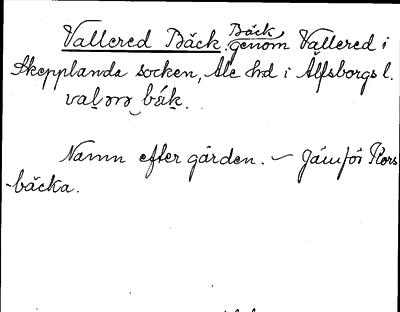 Vallered Bäck. Bäck genom Vallered i
Skepplanda socken, Ale hd i Älfsborgs l.
Namn efter gården. — Jämför Hors
-bäcka.